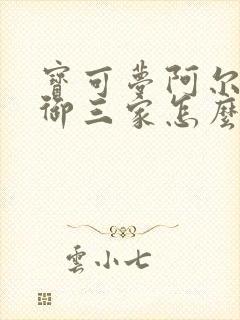 寶可夢阿尔
御三家怎麼
雲小七